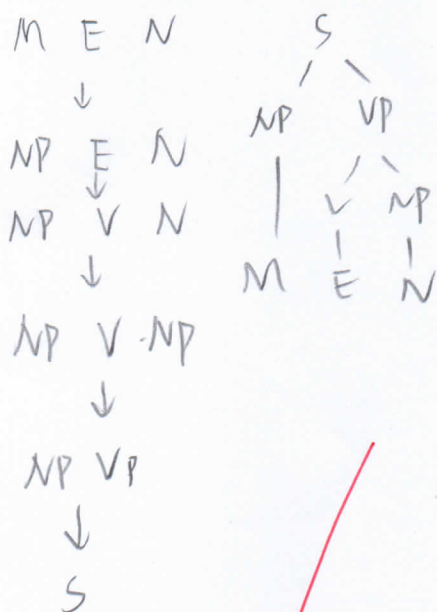 M E N
↓
NP E N
↓
NP V N
↓
NP V NP
↓
NP VP
↓
S
S
NP VP
V NP
M E N